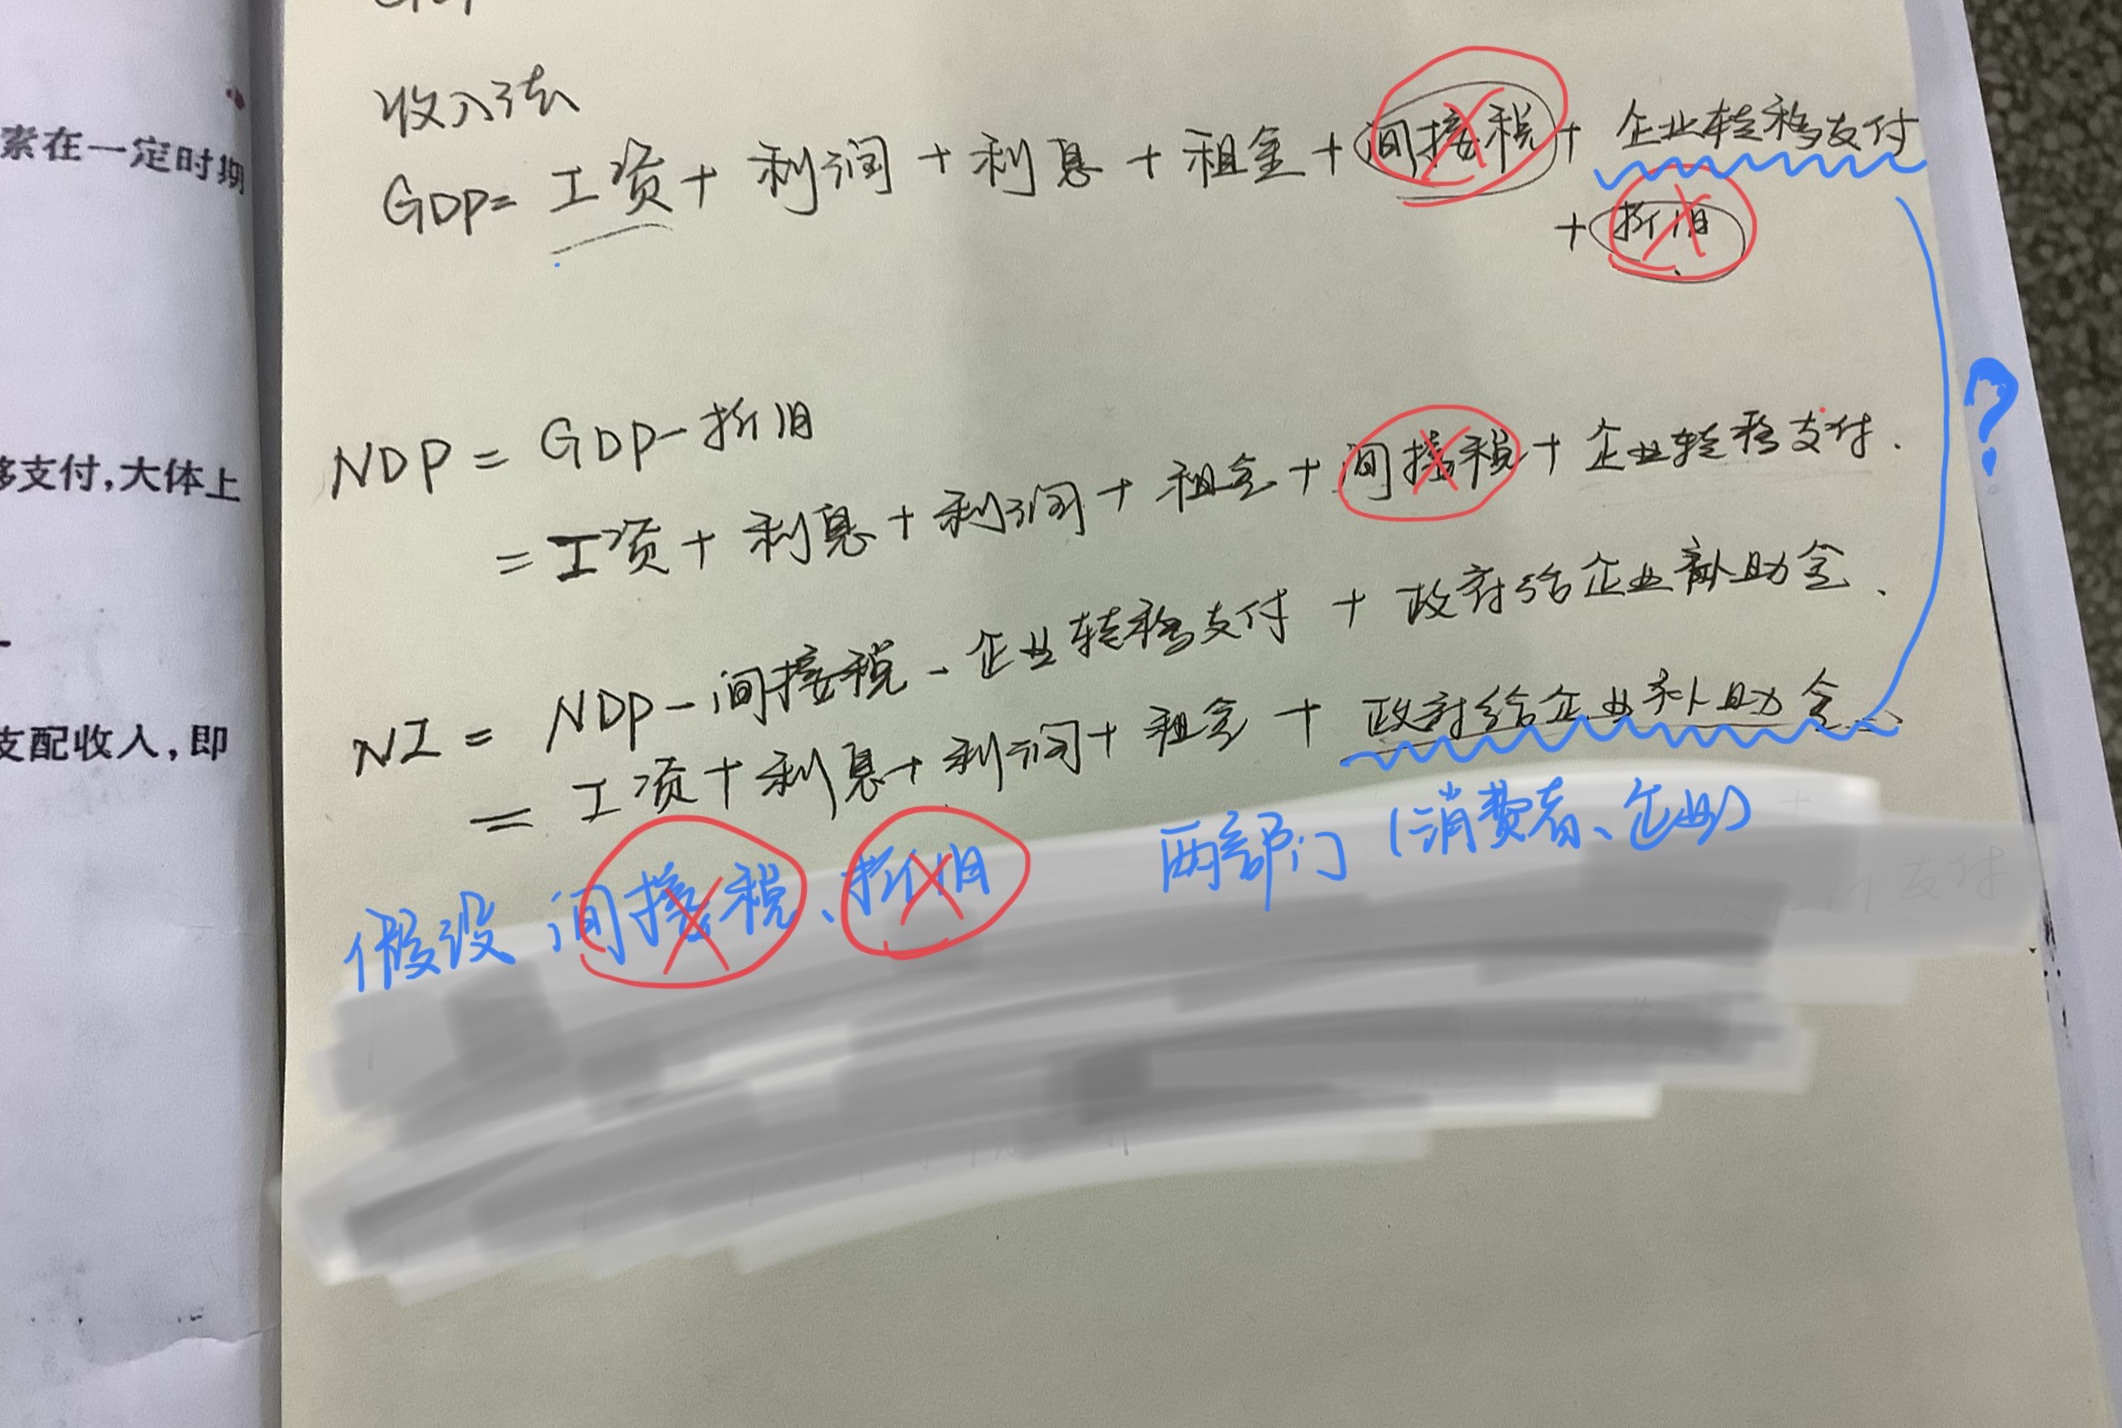 素在一定时期
移支付,大体上
支配收入,即
收入法
GDP= 工资 + 利润 + 利息 + 租金 + 间接税 + 企业转移支付
+ 折旧
NDP = GDP - 折旧
= 工资 + 利息 + 利润 + 租金 + 间接税 + 企业转移支付.
NI = NDP - 间接税 - 企业转移支付 + 政府给企业补助金.
= 工资 + 利息 + 利润 + 租金 + 政府给企业补助金.
?
假设 间接税、折旧 两部门(消费者、企业)
支付